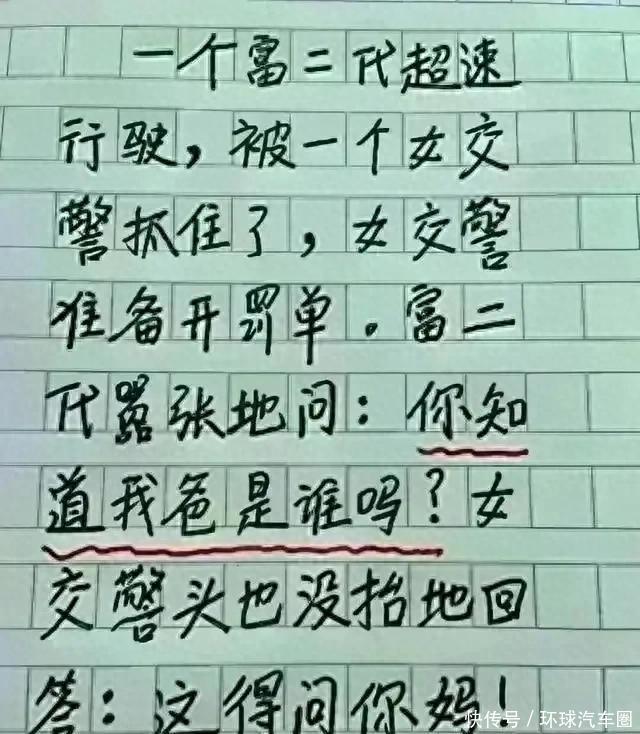 一个富二代超速
行驶，被一个女交
警抓住了，女交警
准备开罚单。富二
代嚣张地问：你知
道我爸是谁吗？女
交警头也没抬地回
答：这得问你妈！
快传号／环球汽车圈